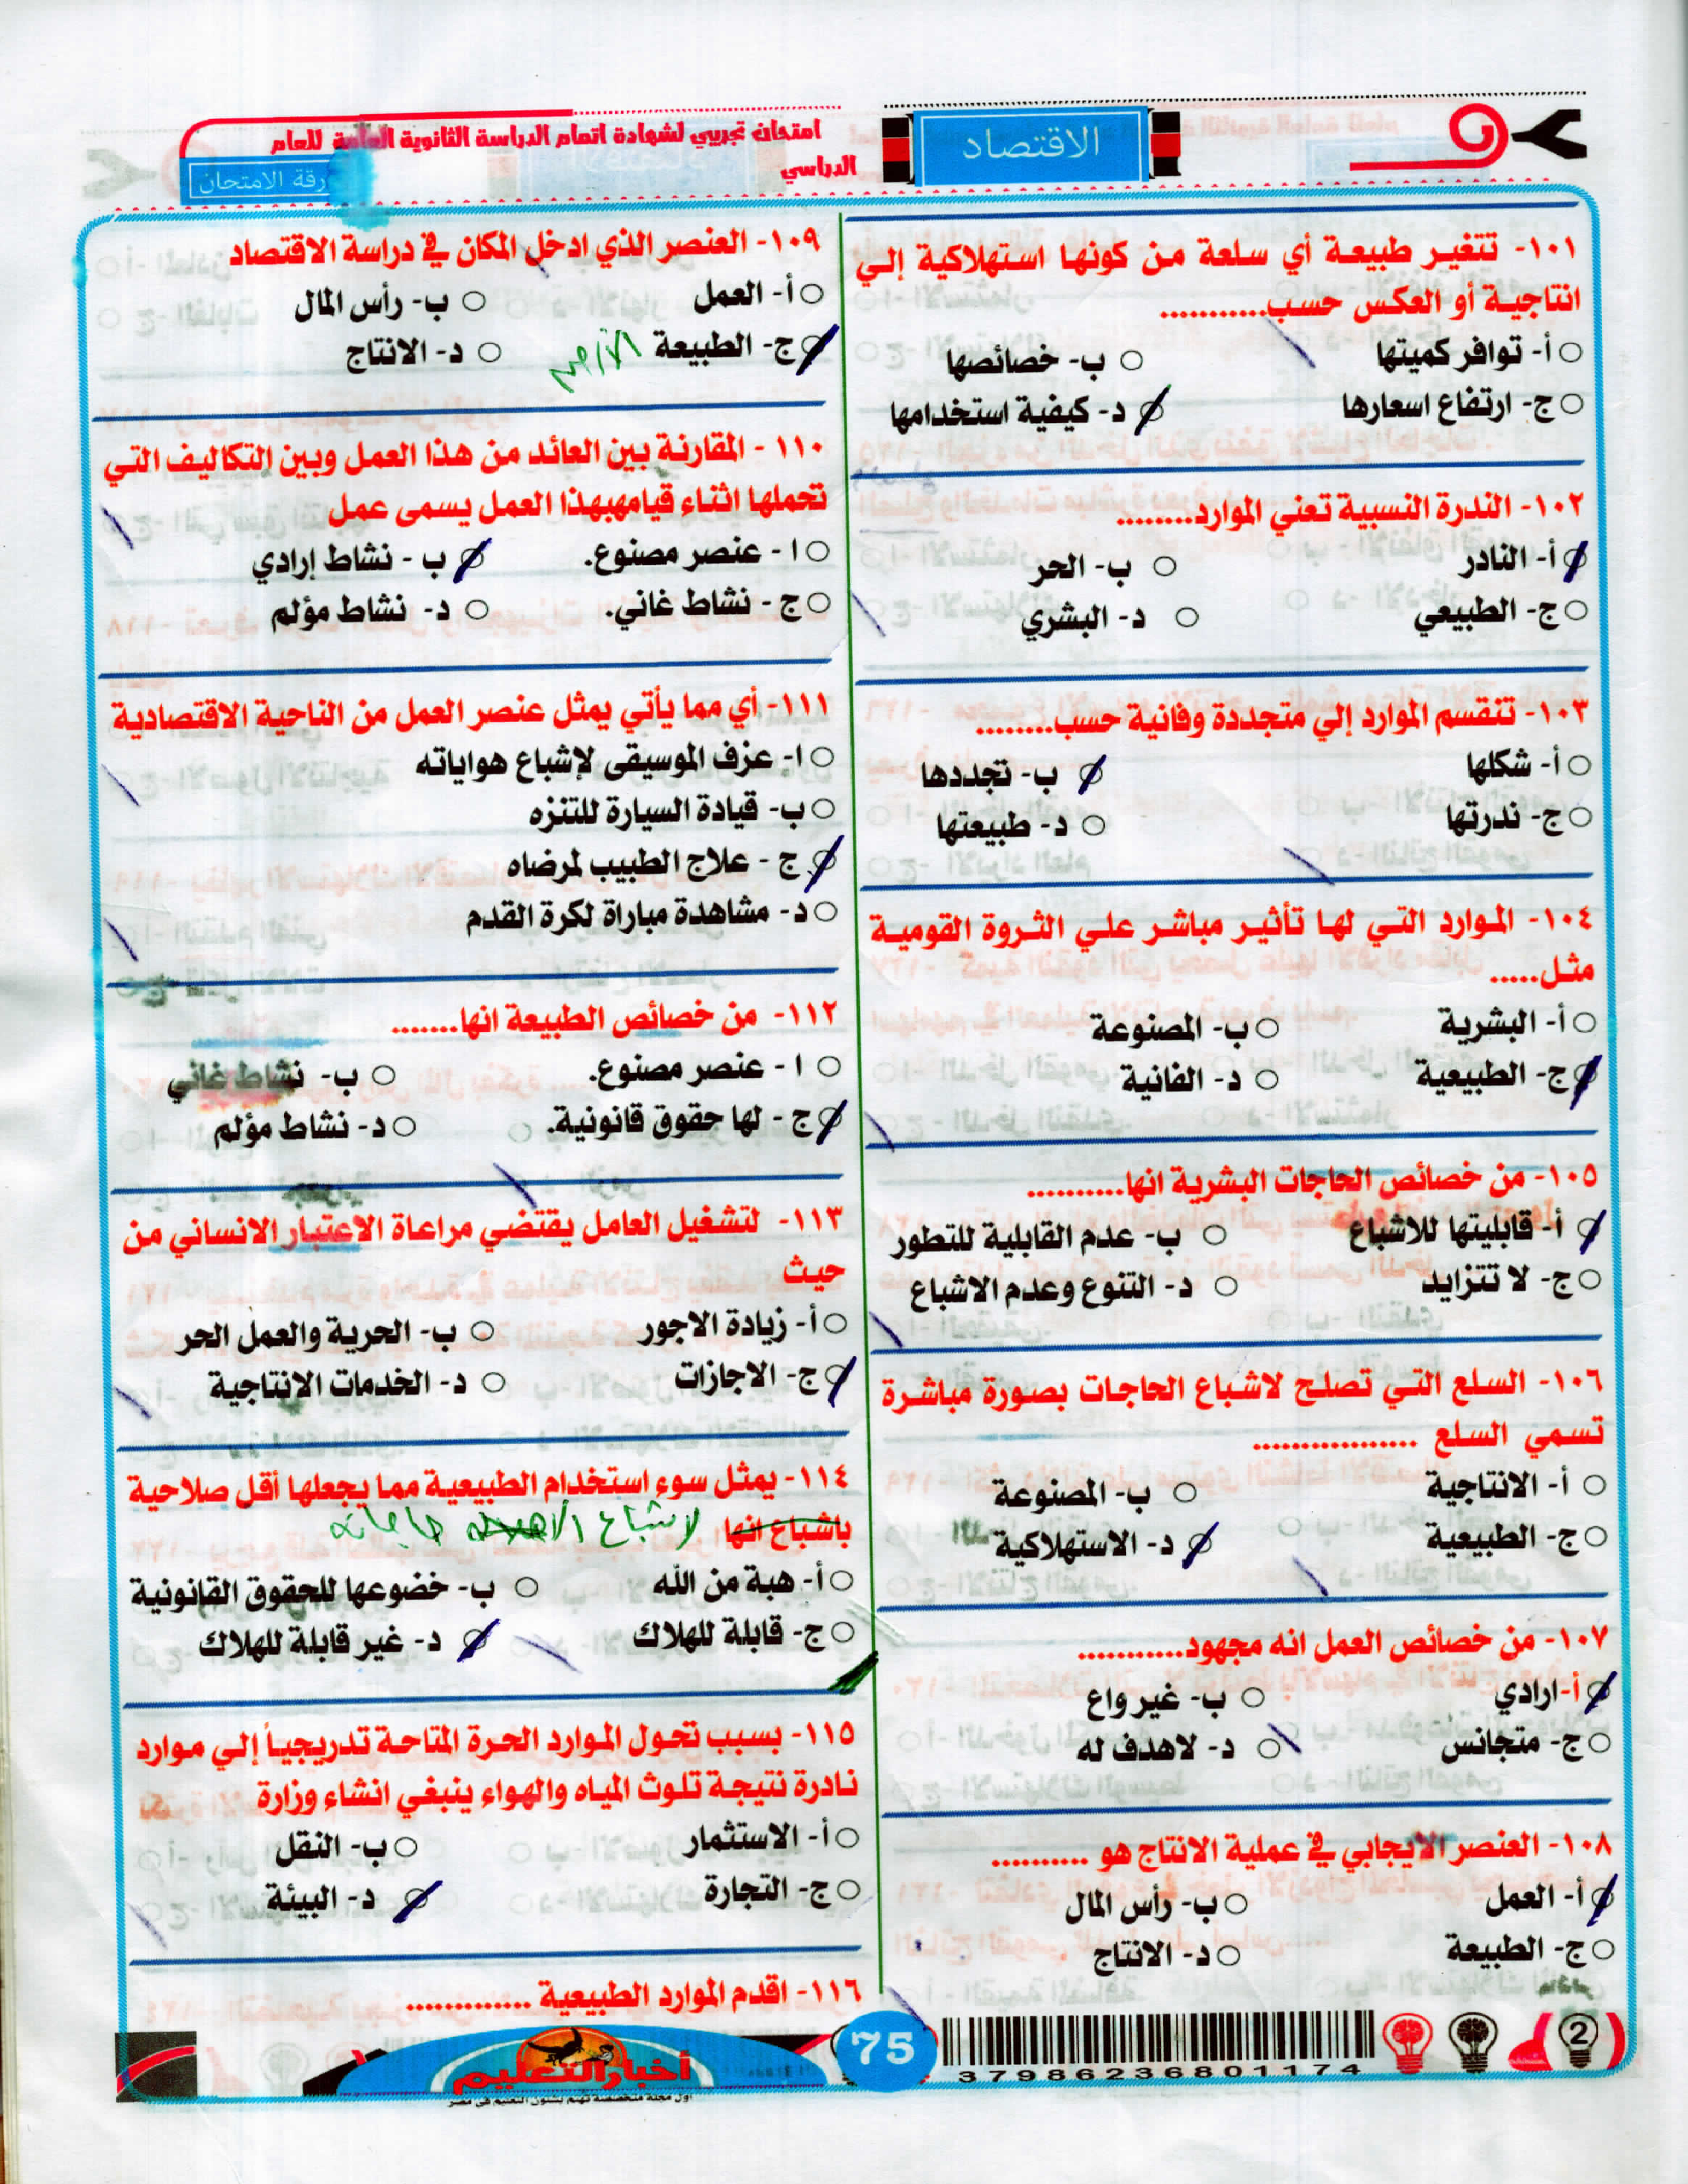 الاقتصاد
امتحان تجريبي لشهادة اتمام الدراسة الثانوية العامة للعام
الدراسي
رقة الامتحان
١٠١- تتغير طبيعة أي سلعة من كونها استهلاكية إلي
انتاجية أو العكس حسب...........
أ- توافر كميتها ب- خصائصها
ج- ارتفاع اسعارها د- كيفية استخدامها
١٠٢- الندرة النسبية تعني الموارد.........
أ- النادر ب- الحر
ج- الطبيعي د- البشري
١٠٣- تنقسم الموارد إلي متجددة وفانية حسب.........
أ- شكلها ب- تجددها
ج- ندرتها د- طبيعتها
١٠٤- الموارد التي لها تأثير مباشر علي الثروة القومية
مثل......
أ- البشرية ب- المصنوعة
ج- الطبيعية د- الفانية
١٠٥- من خصائص الحاجات البشرية انها...........
أ- قابليتها للاشباع ب- عدم القابلية للتطور
ج- لا تتزايد د- التنوع وعدم الاشباع
١٠٦- السلع التي تصلح لاشباع الحاجات بصورة مباشرة
تسمي السلع .................
أ- الانتاجية ب- المصنوعة
ج- الطبيعية د- الاستهلاكية
١٠٧- من خصائص العمل انه مجهود............
أ-ارادي ب- غير واع
ج- متجانس د- لاهدف له
١٠٨- العنصر الايجابي في عملية الانتاج هو ..........
أ- العمل ب- رأس المال
ج- الطبيعة د- الانتاج
١٠٩- العنصر الذي ادخل المكان في دراسة الاقتصاد
أ- العمل ب- رأس المال
ج- الطبيعة الأرض د- الانتاج
١١٠ - المقارنة بين العائد من هذا العمل وبين التكاليف التي
تحملها اثناء قيامهبهذا العمل يسمى عمل
ا - عنصر مصنوع. ب - نشاط إرادي
ج - نشاط غاني. د- نشاط مؤلم
١١١- أي مما يأتي يمثل عنصر العمل من الناحية الاقتصادية
ا- عزف الموسيقى لإشباع هواياته
ب- قيادة السيارة للتنزه
ج - علاج الطبيب لمرضاه
د- مشاهدة مباراة لكرة القدم
١١٢- من خصائص الطبيعة انها.......
ا - عنصر مصنوع. ب- نشاط غاني
ج - لها حقوق قانونية. د- نشاط مؤلم
١١٣- لتشغيل العامل يقتضي مراعاة الاعتبار الانساني من
حيث
أ- زيادة الاجور ب- الحرية والعمل الحر
ج- الاجازات د- الخدمات الانتاجية
١١٤- يمثل سوء استخدام الطبيعية مما يجعلها أقل صلاحية
باشباع انها لاشباع حاجاته
أ- هبة من الله ب- خضوعها للحقوق القانونية
ج- قابلة للهلاك د- غير قابلة للهلاك
١١٥- بسبب تحول الموارد الحرة المتاحة تدريجياً إلي موارد
نادرة نتيجة تلوث المياه والهواء ينبغي انشاء وزارة
أ- الاستثمار ب- النقل
ج- التجارة د- البيئة
١١٦- اقدم الموارد الطبيعية .............
أخبار التعليم
اول مجلة متخصصة تهتم بشئون التعليم فى مصر
75
37986236801174
2